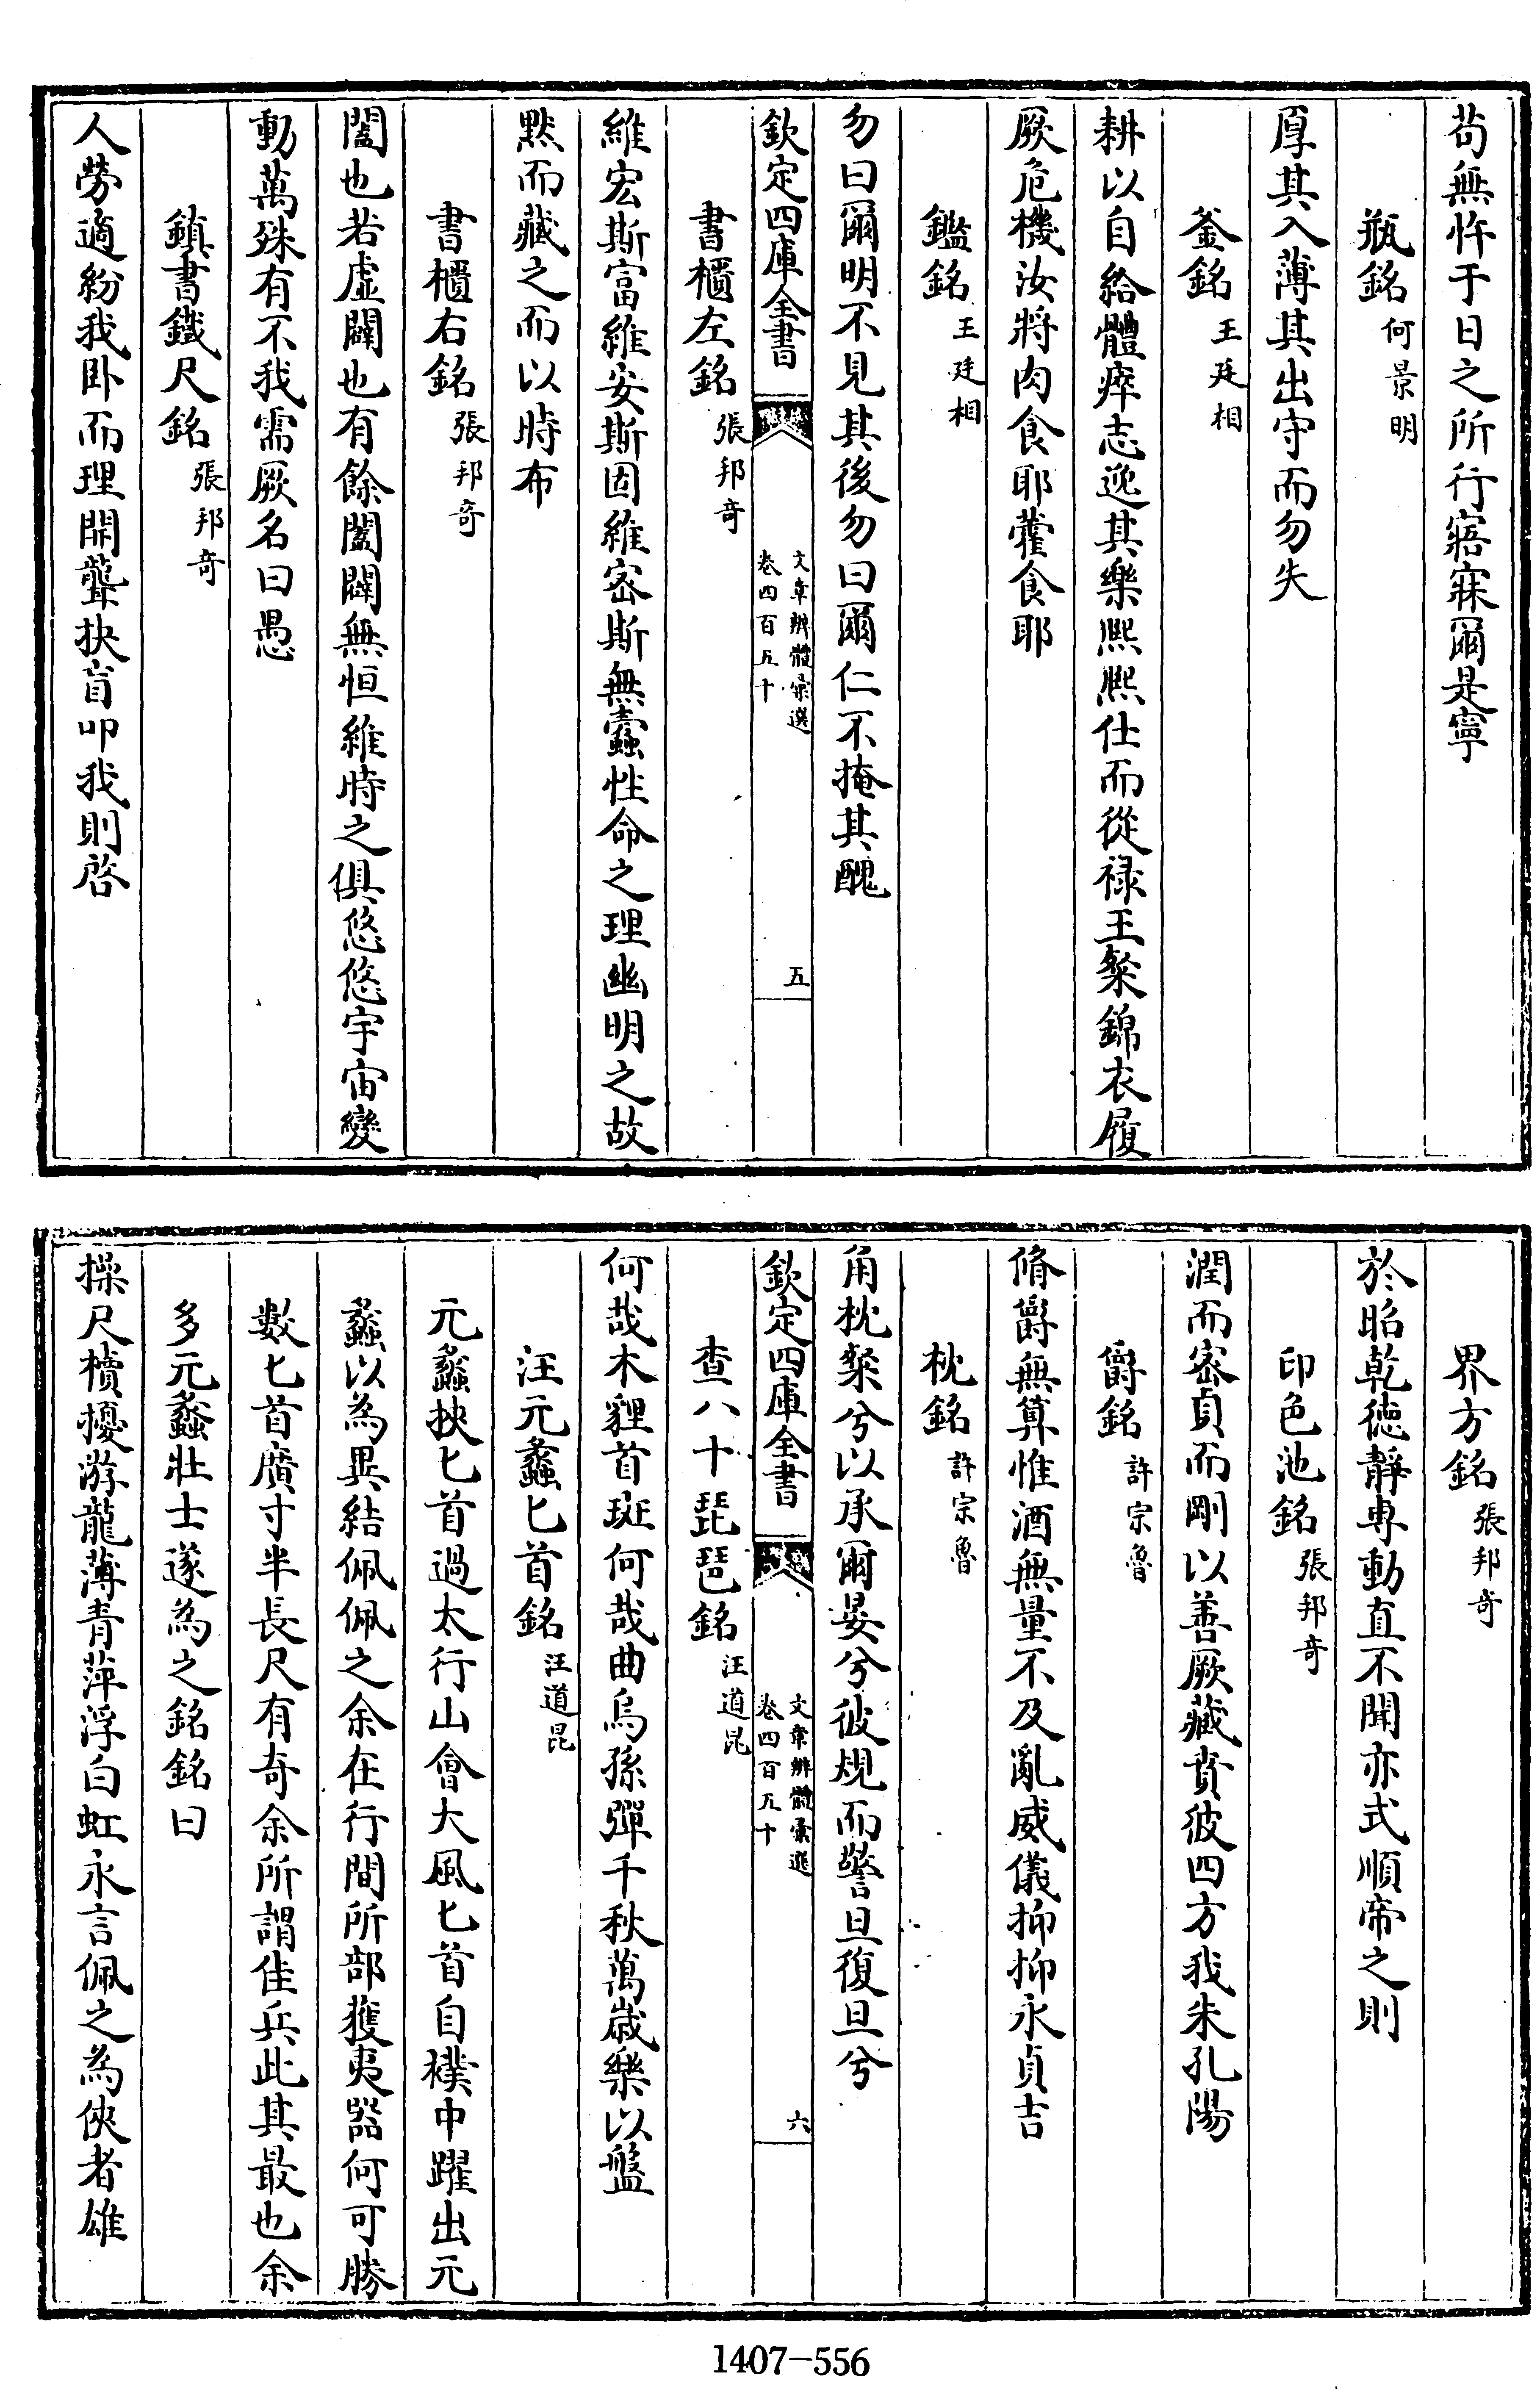 苟無忤于日之所行寤寐爾是寧
瓶銘何景明
厚其入薄其出守而勿失
釜銘王廷相
耕以自給體瘁志逸其樂熙熙仕而從祿王粲錦衣履
厥危機汝將肉食耶藿食耶
鑑銘王廷相
勿曰爾明不見其後勿曰爾仁不掩其醜
欽定四庫全書
文章辨體彙選
卷四百五十
五
書櫃左銘張邦奇
維宏斯富維安斯固維密斯無蠹性命之理幽明之故
默而藏之而以時布
書櫃右銘張邦奇
闔也若虛闢也有餘闔闢無恒維時之俱悠悠宇宙變
動萬殊有不我需厥名曰愚
鎮書鐵尺銘張邦奇
人勞適紛我卧而理開聾抉盲叩我則啓
界方銘張邦奇
於昭乾徳靜專動直不聞亦式順帝之則
印色池銘張邦奇
潤而密貞而剛以善厥藏賁彼四方我朱孔陽
爵銘許宗魯
脩爵無算惟酒無量不及亂威儀抑抑永貞吉
枕銘許宗魯
角枕粲兮以承爾晏兮彼規而警旦復旦兮
欽定四庫全書
文章辨體彙選
卷四百五十
六
查八十琵琶銘汪道昆
何哉木貍首斑何哉曲烏孫彈千秋萬歲樂以盤
汪元蠡匕首銘汪道昆
元蠡挾匕首過太行山會大風匕首自襆中躍出元
蠡以為異結佩佩之余在行間所部獲夷器何可勝
數匕首廣寸半長尺有奇余所謂佳兵此其最也余
多元蠡壯士遂為之銘銘曰
操尺櫝擾游龍薄青萍浮白虹永言佩之為俠者雄
1407-556